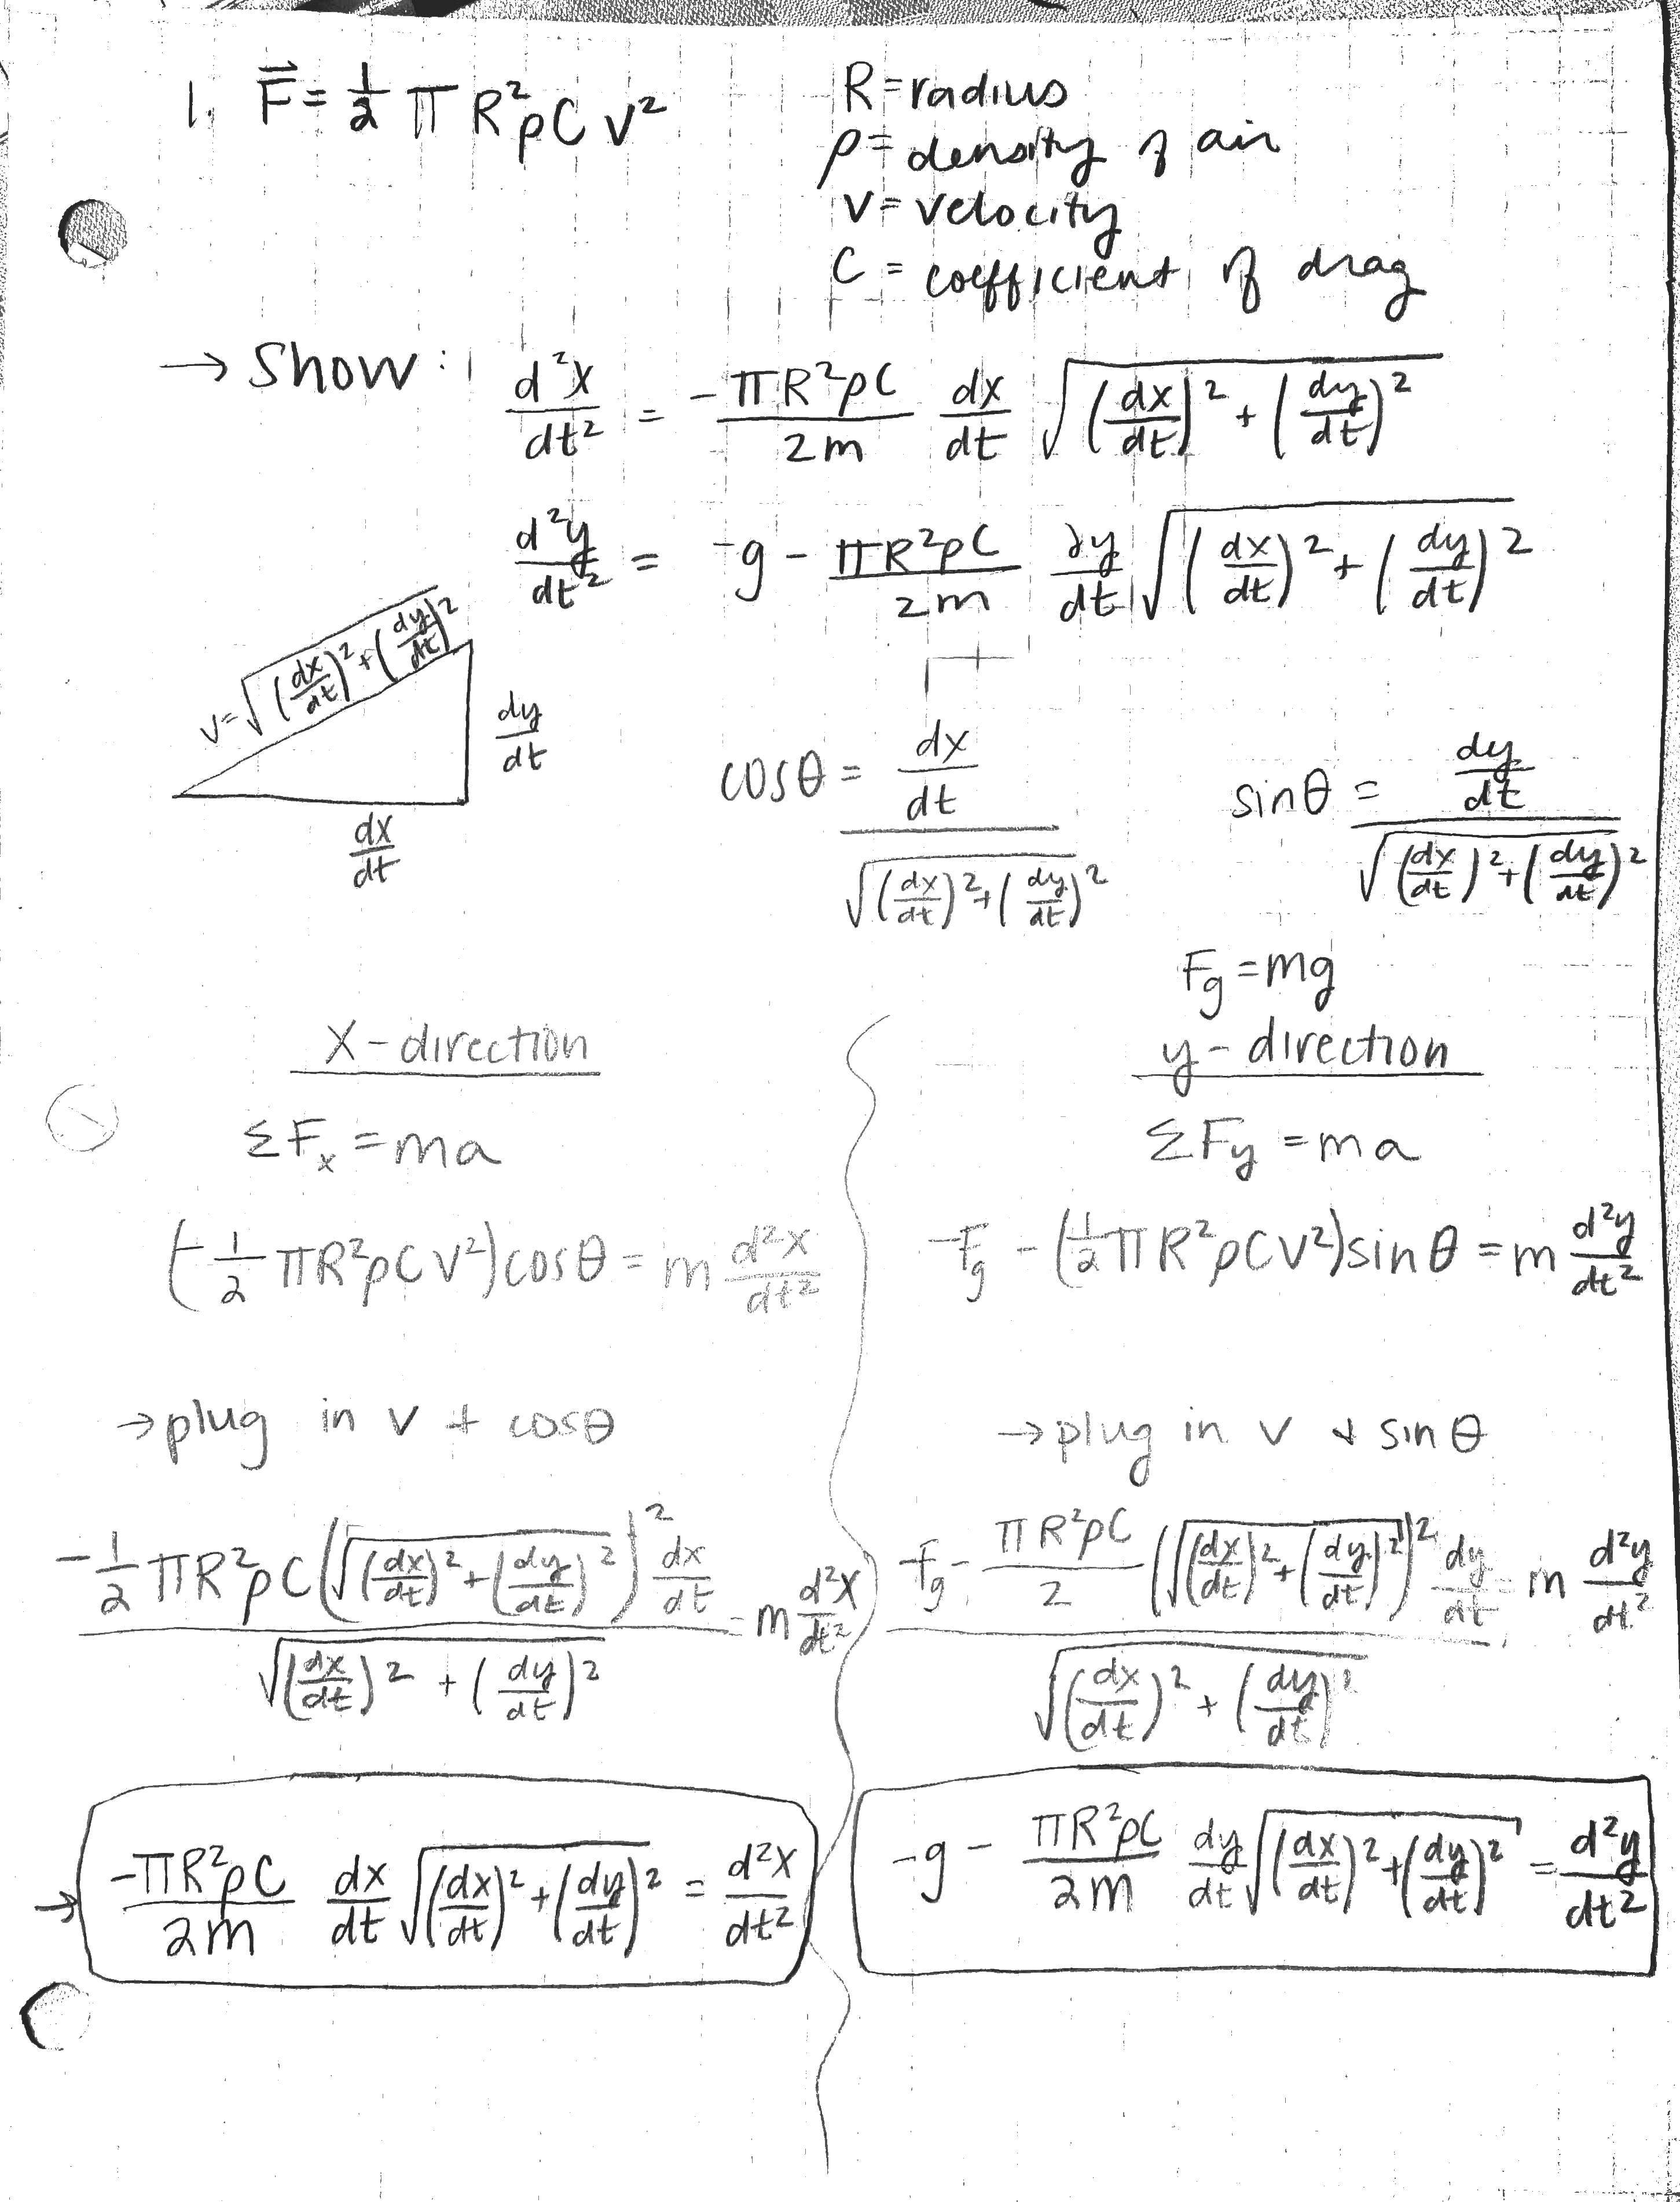 1. F⃗ = 1/2 π R²ρ C v²
R = radius
ρ = density of air
v = velocity
C = coefficient of drag
→ Show: d²x/dt² = -πR²ρC/2m dx/dt √((dx/dt)² + (dy/dt)²)
d²y/dt² = -g - πR²ρC/2m ∂y/dt √((dx/dt)² + (dy/dt)²)
v = √((dx/dt)² + (dy/dt)²)
dy/dt
dx/dt
cosθ = (dx/dt) / √((dx/dt)² + (dy/dt)²)
sinθ = (dy/dt) / √((dx/dt)² + (dy/dt)²)
X-direction
ΣFₓ = ma
(-1/2 πR²ρCv²)cosθ = m d²x/dt²
→ plug in v + cosθ
-1/2 πR²ρC(√((dx/dt)² + (dy/dt)²))² dx/dt / √((dx/dt)² + (dy/dt)²) = m d²x/dt²
→ -πR²ρC/2m dx/dt √((dx/dt)² + (dy/dt)²) = d²x/dt²
Fg = mg
y-direction
ΣFy = ma
-Fg - (1/2 πR²ρCv²)sinθ = m d²y/dt²
→ plug in v + sinθ
-Fg - πR²ρC/2 (√((dx/dt)² + (dy/dt)²))² dy/dt / √((dx/dt)² + (dy/dt)²) = m d²y/dt²
-g - πR²ρC/2m dy/dt √((dx/dt)² + (dy/dt)²) = d²y/dt²